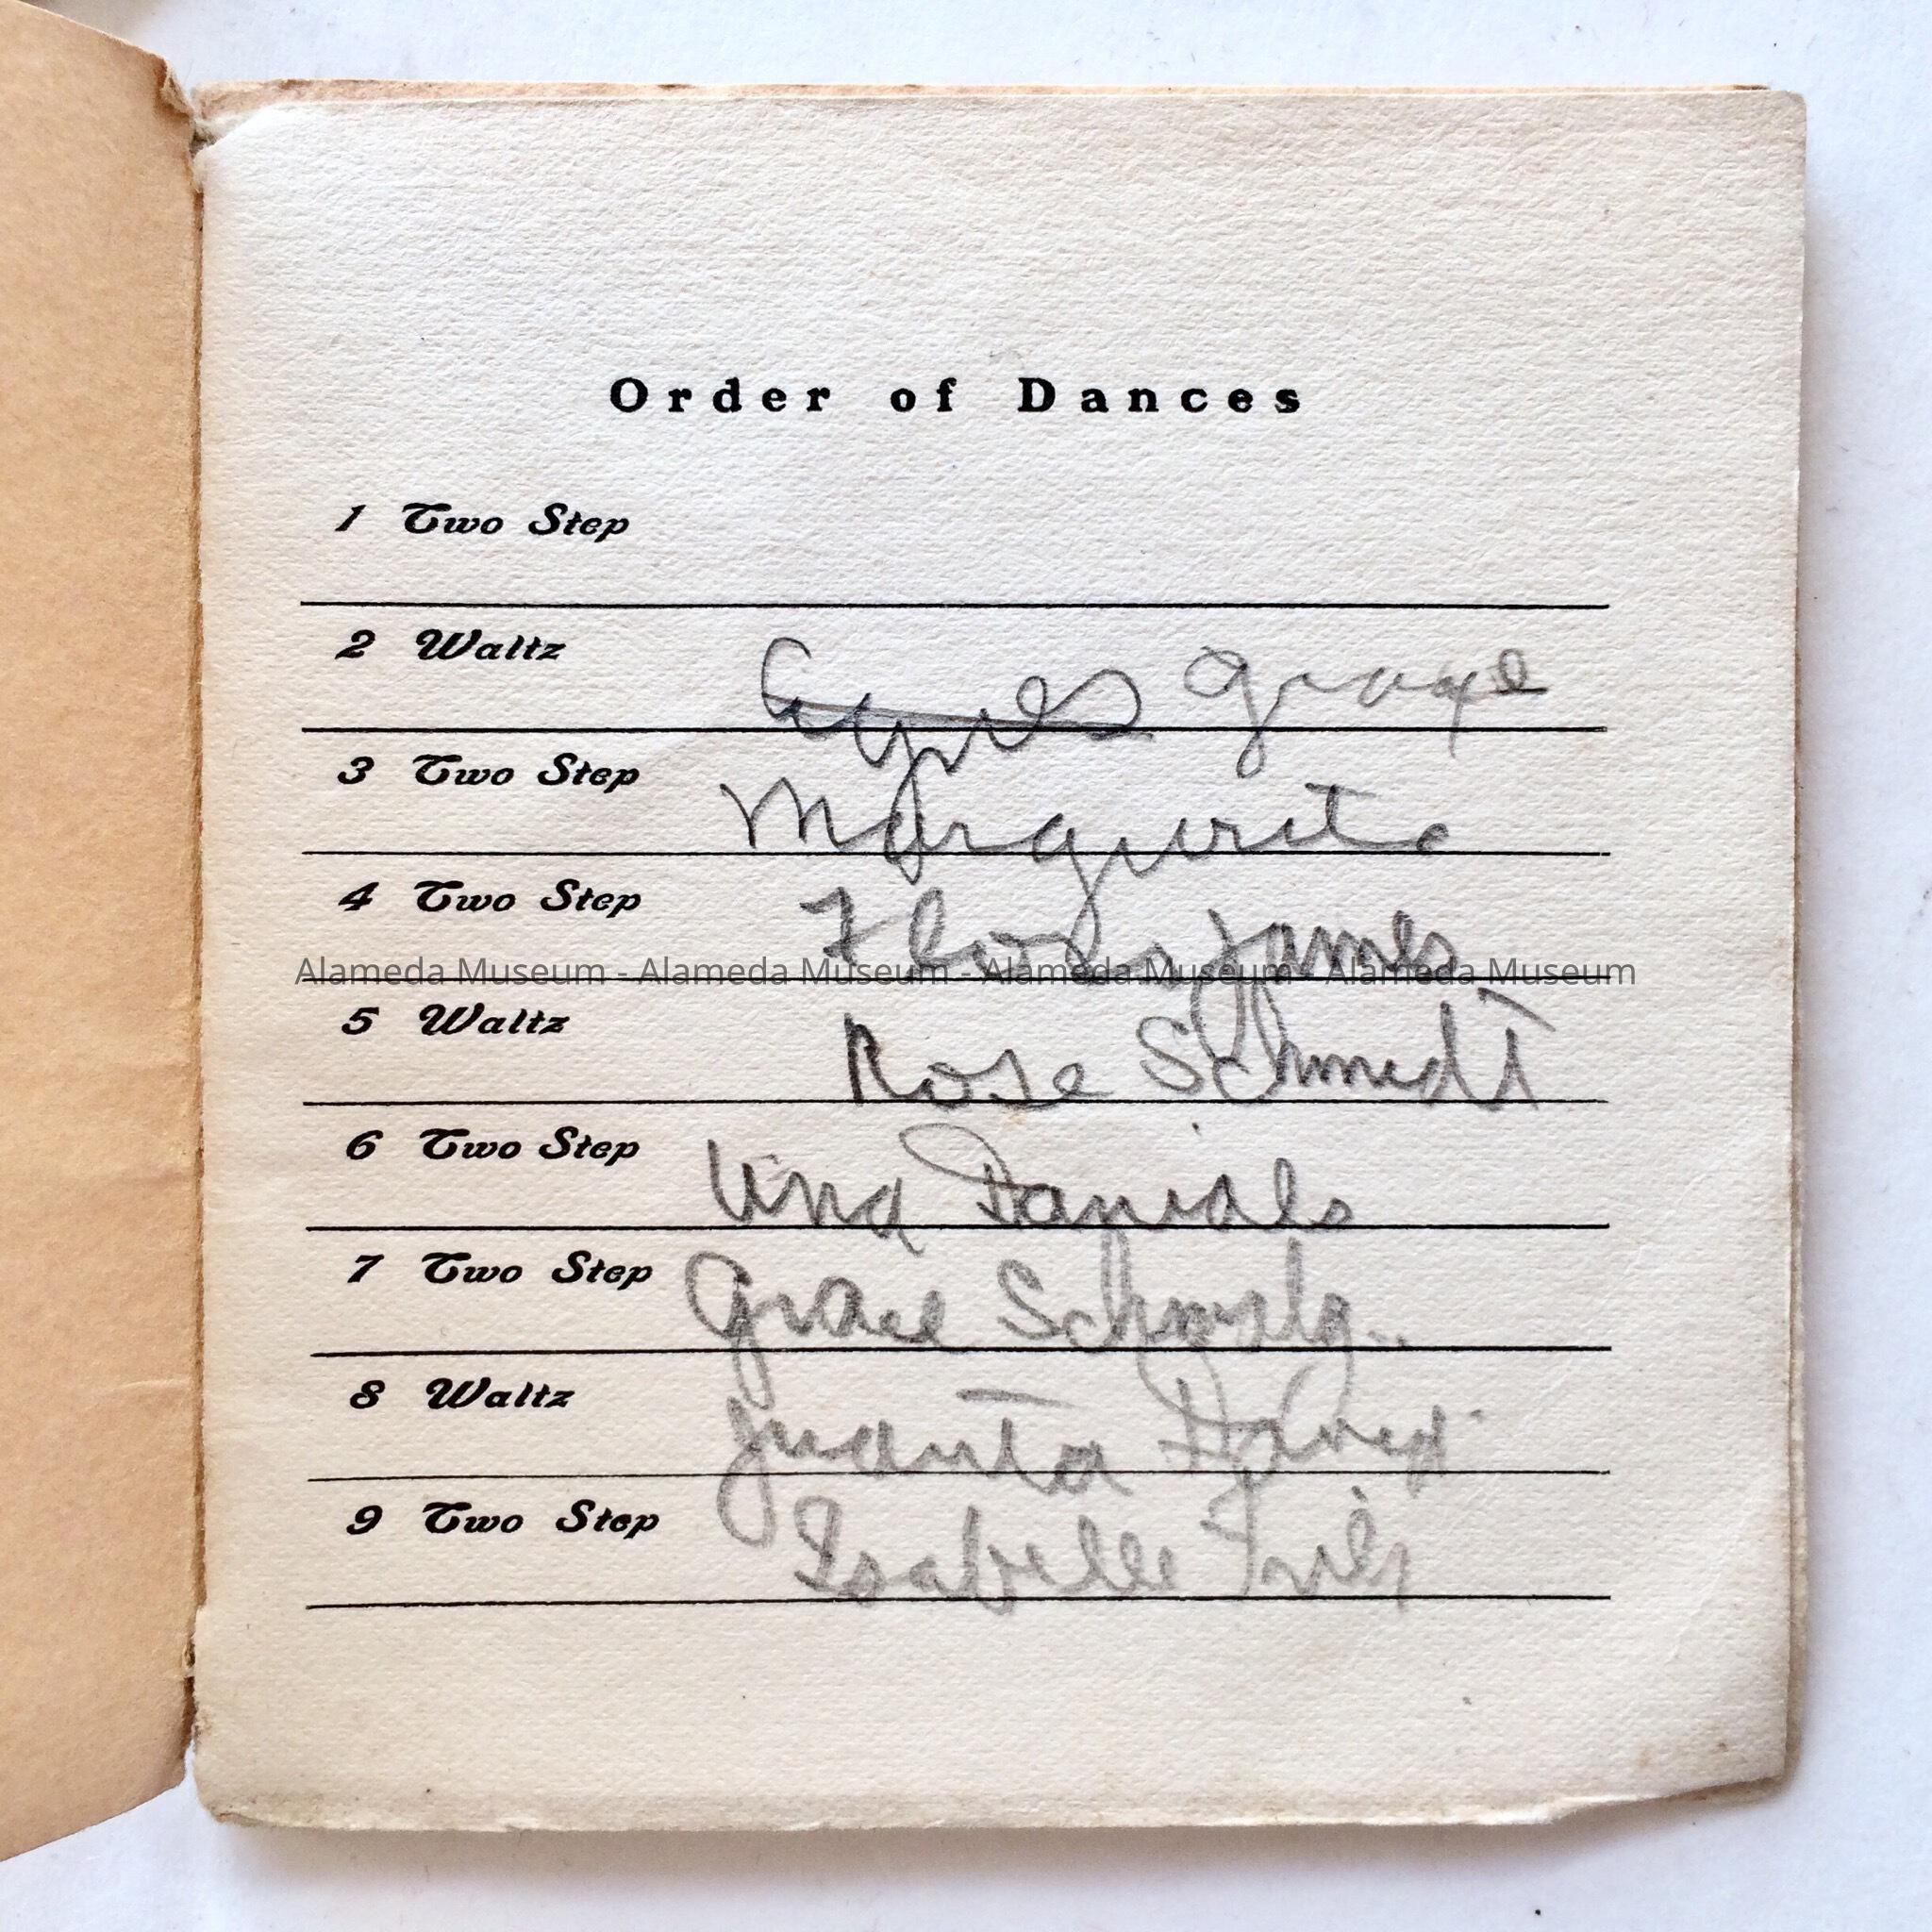 Order of Dances
1 Two Step
2 Waltz
3 Two Step Marguerite
4 Two Step Flora James
Alameda Museum - Alameda Museum - Alameda Museum - Alameda Museum
5 Waltz Rose Schmidt
6 Two Step Una Daniels
7 Two Step Grace
8 Waltz Juanta
9 Two Step Isabelle